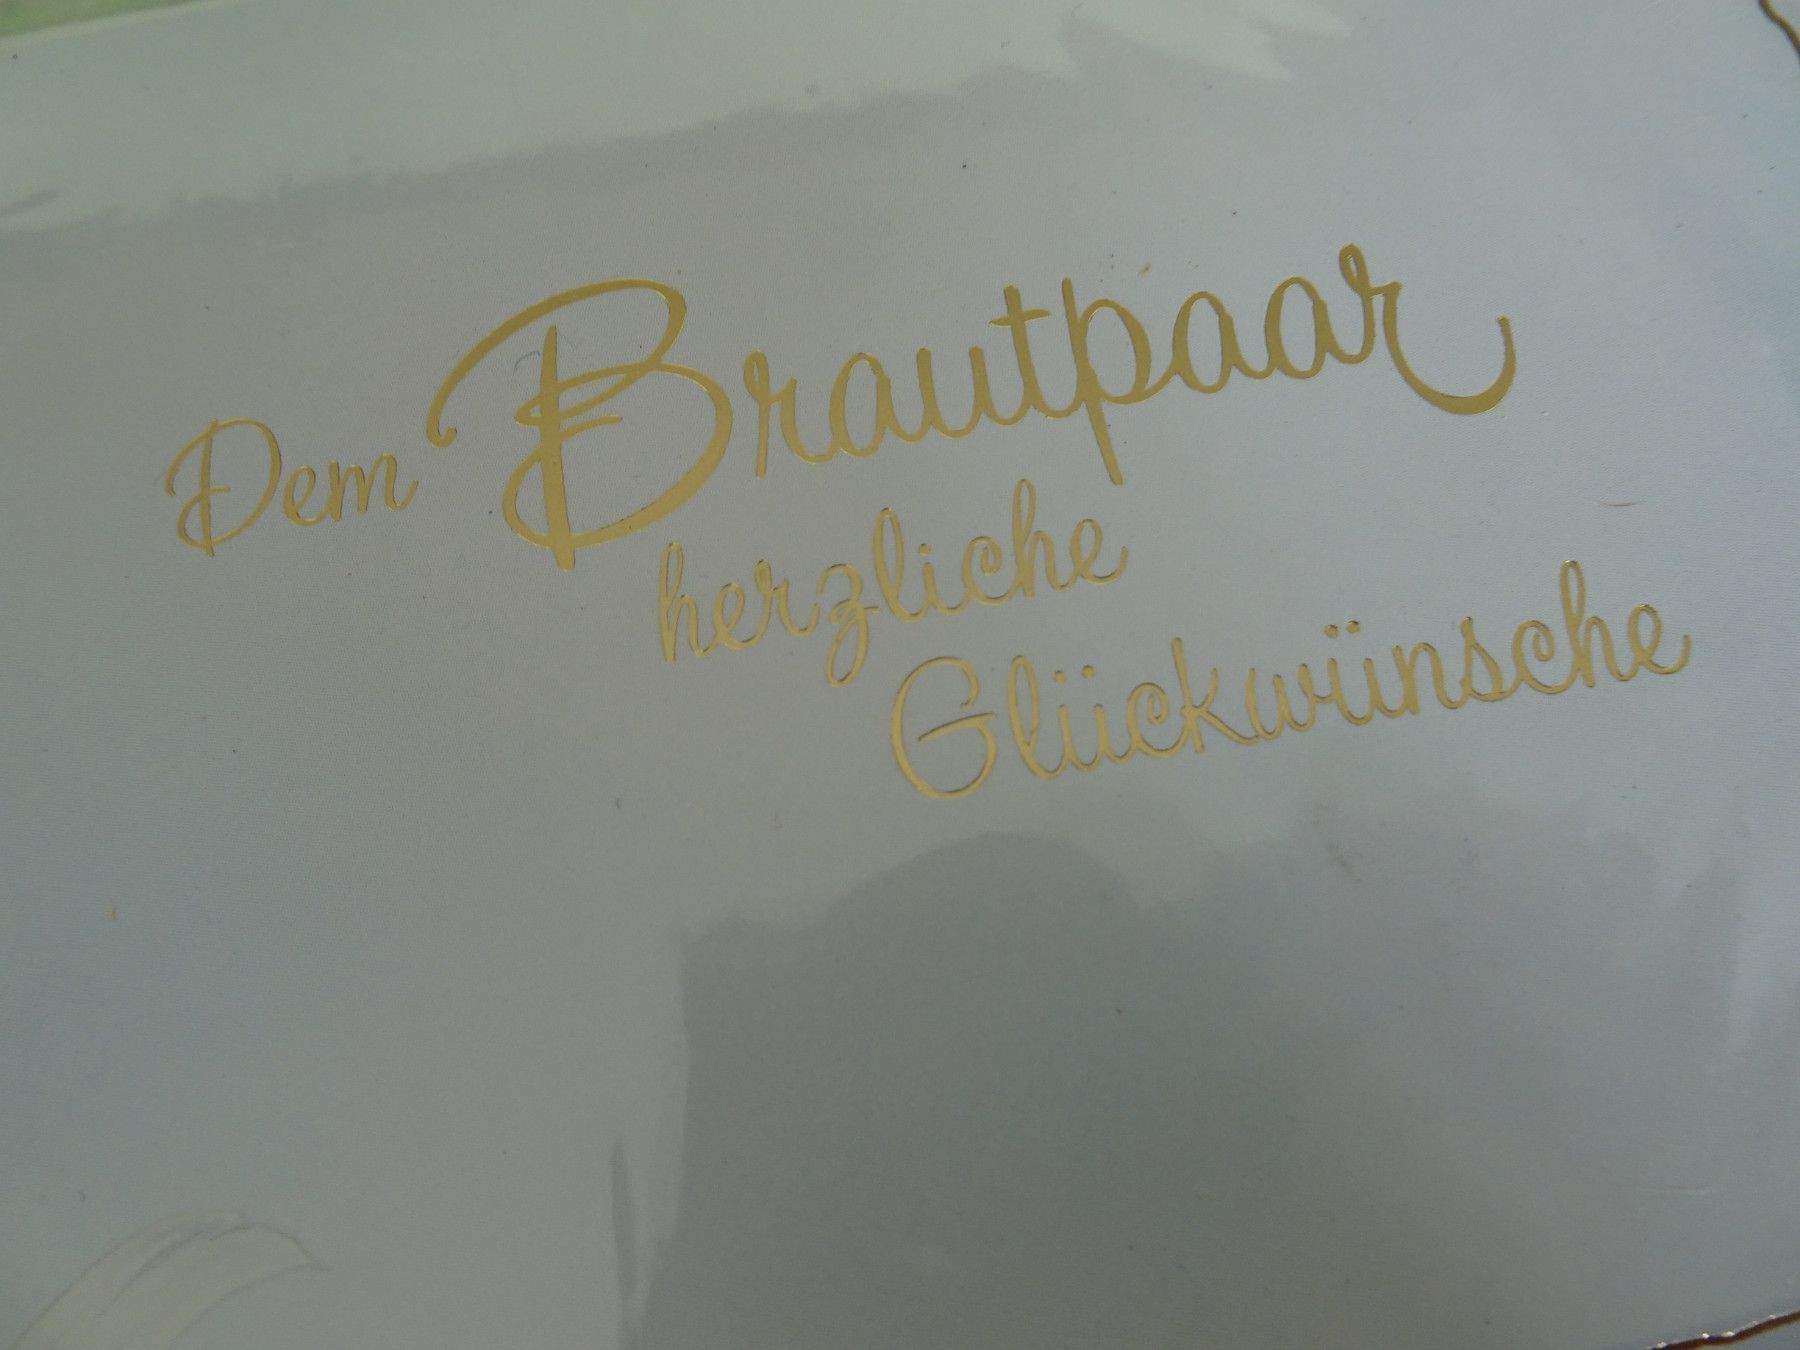 Dem Brautpaar
herzliche
Glückwünsche